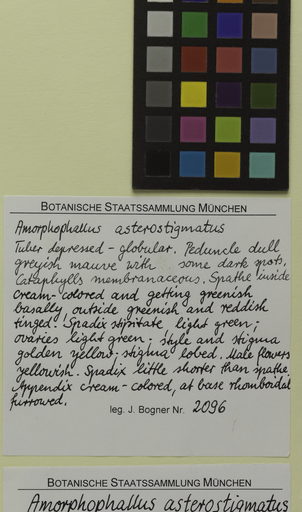 BOTANISCHE STAATSSAMMLUNG MÜNCHEN
Amorphophallus asterostigmatus
Tuber depressed-globular. Peduncle dull
greyish mauve with some dark spots,
Cataphylls membranaceous. Spathe inside
cream-colored and getting greenish
basally, outside greenish and reddish
tinged. Spadix stipitate, light green;
ovaries light green; style and stigma
golden yellow; stigma lobed. Male flowers
yellowish. Spadix little shorter than spathe.
Appendix cream-colored, at base rhomboidal
furrowed.
leg. J. Bogner Nr. 2096
BOTANISCHE STAATSSAMMLUNG MÜNCHEN
Amorphophallus asterostigmatus